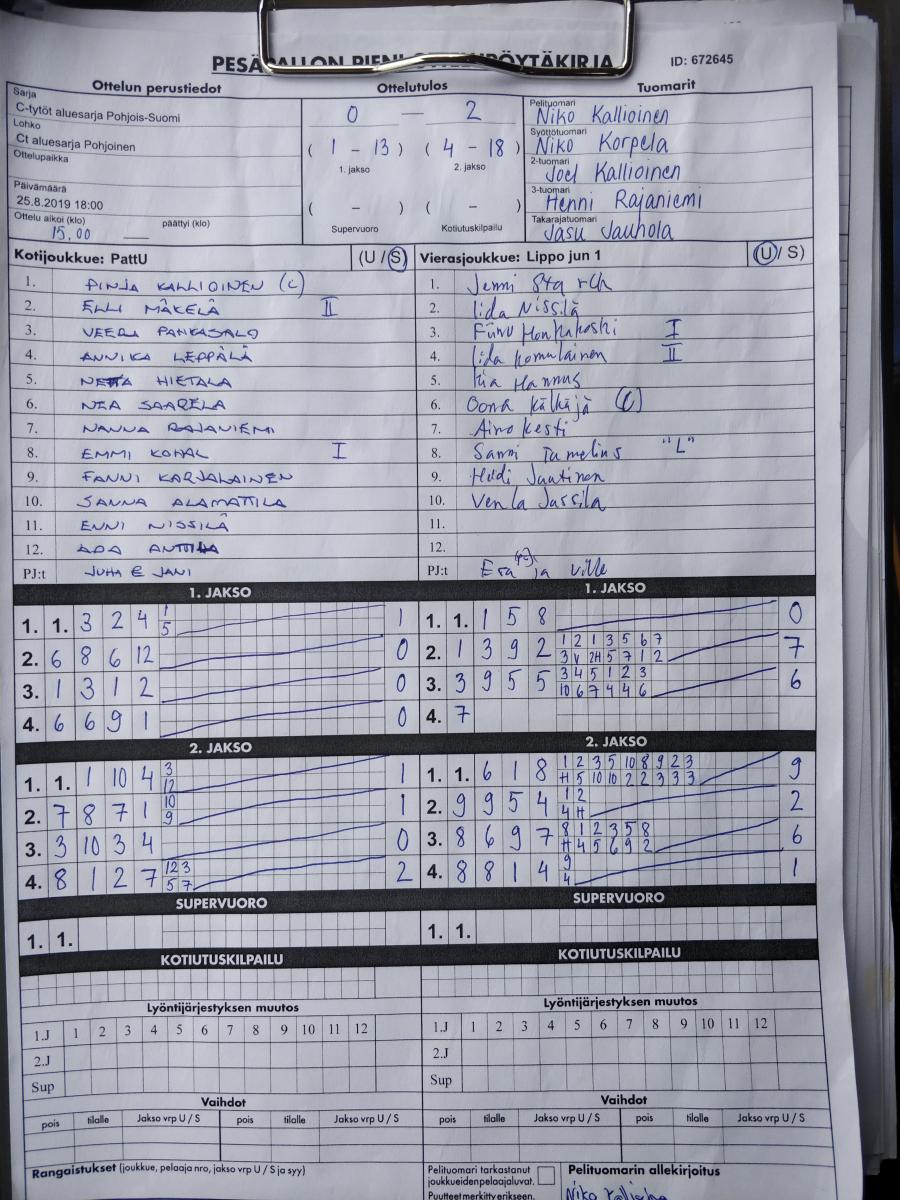 ID: 672645
Ottelun perustiedot Ottelutulos Tuomarit
Sarja
C-tytöt aluesarja Pohjois-Suomi
Lohko
Ct aluesarja Pohjoinen
Ottelupaikka
Päivämäärä
25.8.2019 18:00
Ottelu alkoi (klo) päättyi (klo)
15.00
0 — 2
( 1 - 13 ) ( 4 - 18 )
1. jakso 2. jakso
( - ) ( - )
Supervuoro Kotiutuskilpailu
Pelituomari
Niko Kallioinen
Syöttötuomari
Niko Korpela
2-tuomari
Joel Kallioinen
3-tuomari
Henni Rajaniemi
Takarajatuomari
Jasu Jauhola
Kotijoukkue: PattU (U / S)
1. PINJA KALLIOINEN (C)
2. ELLI MÄKELÄ II
3. VEERA PAKKASALO
4. ANNIKA LEPPÄLÄ
5. NETTA HIETALA
6. NEA SAARELA
7. NANNA RAJANIEMI
8. EMMI I
9. FANNI KARJALAINEN
10. SANNA ALAMATTILA
11. ENNI NISSILÄ
12. ADA ANTTILA
PJ:t JUHA & JANI
Vierasjoukkue: Lippo jun 1 (U / S)
1. Jenni Starck
2. Iida Nissilä
3. Honkakoski I
4. Iida Komulainen II
5. Kia Hannus
6. Oona Kälkäjä (C)
7. Aino Kesti
8. Sanni Tumelius "L"
9. Heidi Juutinen
10. Venla Jussila
11.
12.
PJ:t Esa ja Ville
1. JAKSO
1. 1. 3 2 4 1 1
5
2. 6 8 6 12 0
3. 1 3 1 2 0
4. 6 6 9 1 0
1. JAKSO
1. 1. 1 5 8 0
2. 1 3 9 2 1 2 1 3 5 6 7 7
3 V 2H 5 7 1 2
3. 3 9 5 5 3 4 5 1 2 3 6
10 6 7 4 4 6
4. 7
2. JAKSO
1. 1. 1 10 4 3 1
12
2. 7 8 7 1 10 1
9
3. 3 10 3 4 0
4. 8 1 2 7 12 3 2
5 7
2. JAKSO
1. 1. 6 1 8 1 2 3 5 10 8 9 2 3 9
H 5 10 10 2 2 3 3 3
2. 9 9 5 4 1 2 2
4 H
3. 8 6 9 7 8 1 2 3 5 8 6
H 4 5 6 9 2
4. 8 8 1 4 9 1
4
SUPERVUORO SUPERVUORO
1. 1. 1. 1.
KOTIUTUSKILPAILU KOTIUTUSKILPAILU
Lyöntijärjestyksen muutos Lyöntijärjestyksen muutos
1.J 1 2 3 4 5 6 7 8 9 10 11 12 1.J 1 2 3 4 5 6 7 8 9 10 11 12
2.J 2.J
Sup Sup
Vaihdot Vaihdot
pois tilalle Jakso vrp U / S pois tilalle Jakso vrp U / S pois tilalle Jakso vrp U / S pois tilalle Jakso vrp U / S
Rangaistukset (joukkue, pelaaja nro, jakso vrp U / S ja syy)
Pelituomari tarkastanut
joukkueidenpelaajaluvat.
Puutteet merkitty erikseen.
Pelituomarin allekirjoitus
Niko